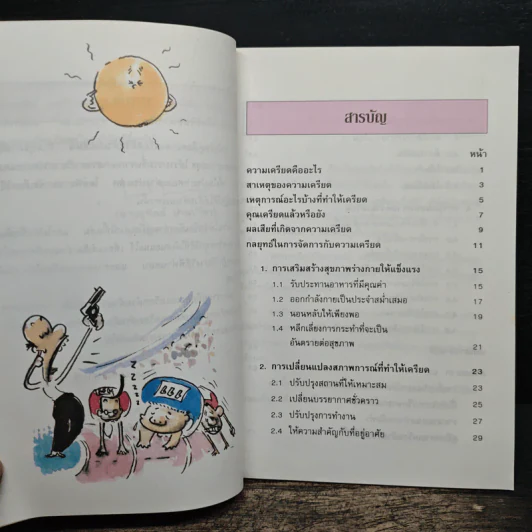 สารบัญ
หน้า
ความเครียดคืออะไร 1
สาเหตุของความเครียด 3
เหตุการณ์อะไรบ้างที่ทำให้เครียด 5
คุณเครียดแล้วหรือยัง 7
ผลเสียที่เกิดจากความเครียด 9
กลยุทธ์ในการจัดการกับความเครียด 11
1. การเสริมสร้างสุขภาพร่างกายให้แข็งแรง 15
1.1 รับประทานอาหารที่มีคุณค่า 15
1.2 ออกกำลังกายเป็นประจำสม่ำเสมอ 17
1.3 นอนหลับให้เพียงพอ 19
1.4 หลีกเลี่ยงการกระทำที่จะเป็น
อันตรายต่อสุขภาพ 21
2. การเปลี่ยนแปลงสภาพการณ์ที่ทำให้เครียด 23
2.1 ปรับปรุงสถานที่ให้เหมาะสม 23
2.2 เปลี่ยนบรรยากาศชั่วคราว 25
2.3 ปรับปรุงการทำงาน 27
2.4 ให้ความสำคัญกับที่อยู่อาศัย 29